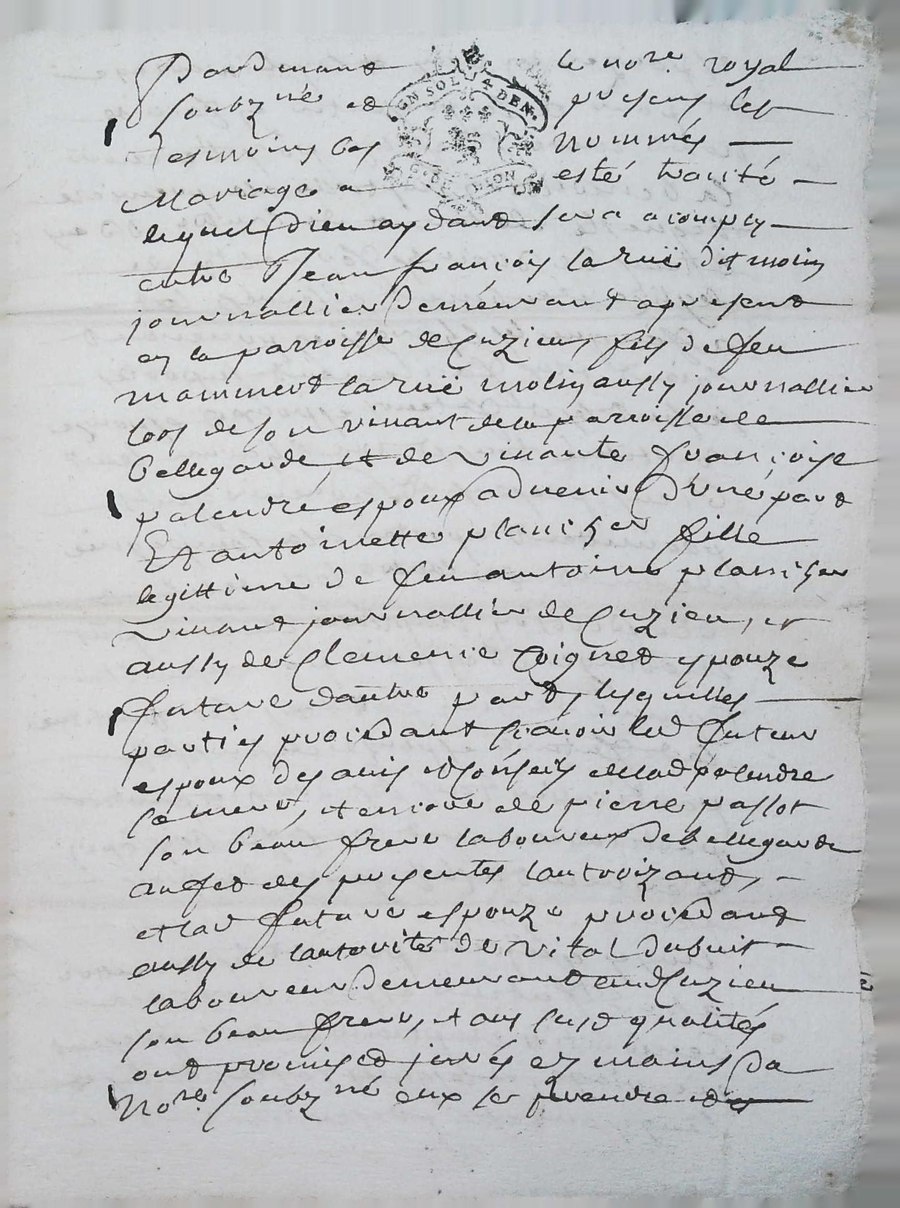 Pardevant le nore. royal
soubzné et presens les
tesmoins bas nommés
Mariage a esté traité
UN SOL 4 DEN.
G. DE LION
lequel Dieu aydant sera acomply
entre Jean françois laruë dit molin
journallier Demeurant apresent
en la parroisse de Cuzieu, fils de feu
mammert laruë molin aussy journallier
lors de son vivant de la parroisse de
bellegarde, et de vivante françoise
palendré, espoux advenir d'une part
Et antoinette planchet fille
legittime de feu antoine planchet
vivant journallier de Cuzieu, et
aussy de Clemence Coignet espouze
future dautre part, lesquelles
parties procedant scavoir led futeur
espoux des avis et Conseils de lad palendre
sa mere, et encore de pierre passot
son beau frere laboureur de bellegarde
au fet des presentes lautorizant,
et lad future espouze procedant
aussy de lautorité de vital dubuit
laboureur demeurant aud Cuzieu
son beau frere, et aux susd qualités
ont promis et jurés es mains du
Nore. soubzné eux se prendre et